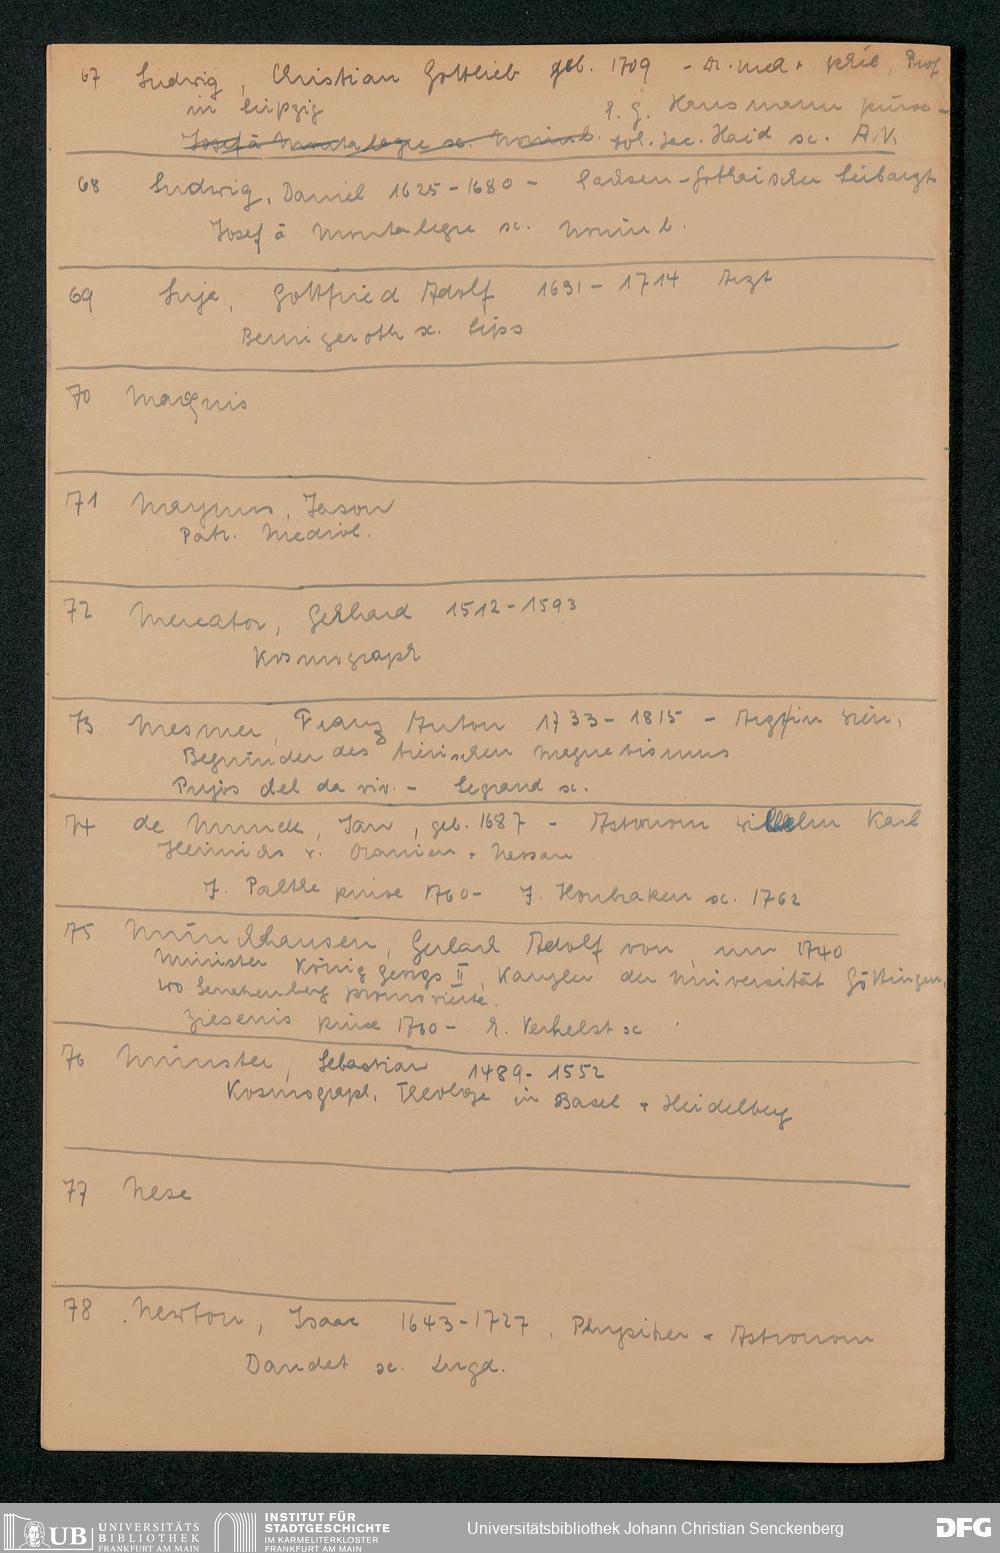 67 Ludwig, Christian Gottlieb geb. 1709 - Dr. med. + phil, Prof
in Leipzig E. G. Hausmann pinx -
Josef à Montalegre sc. Norimb. Joh. Jac. Haid sc. A.V.
68 Ludwig, Daniel 1625-1680 - Sachsen-Gothaischer Leibarzt
Josef à Montalegre sc. Norimb.
69 Luja, Gottfried Adolf 1691-1714 Arzt
Bernigeroth sc. Lips
70 Magnis
71 Maynus, Jason
Patr. Mediol.
72 Mercator, Gerhard 1512-1593
Kosmograph
73 Mesmer, Franz Anton 1733-1815 - Arzt in Wien,
Begründer des tierischen Magnetismus
Pujos del da viv. - Legrand sc.
74 de Munck, Jan, geb. 1687 - Astronom Wilhelm Karl
Heinrichs v. Oranien + Nassau
J. Palthe pinxe 1760 - J. Houbraken sc. 1762
75 Münchhausen, Gerlach Adolf von, um 1740
Minister König Georgs II, Kanzler der Universität Göttingen,
wo Senckenberg promovierte.
Ziesenis pinxe 1760 - E. Verhelst sc
76 Münster, Sebastian 1489-1552
Kosmograph, Theologe in Basel + Heidelberg
77 Nese
78 Newton, Isaac 1643-1727, Physiker + Astronom
Daudet sc. Lugd.
UB UNIVERSITÄTS
BIBLIOTHEK
FRANKFURT AM MAIN
INSTITUT FÜR
STADTGESCHICHTE
IM KARMELITERKLOSTER
FRANKFURT AM MAIN
Universitätsbibliothek Johann Christian Senckenberg
DFG